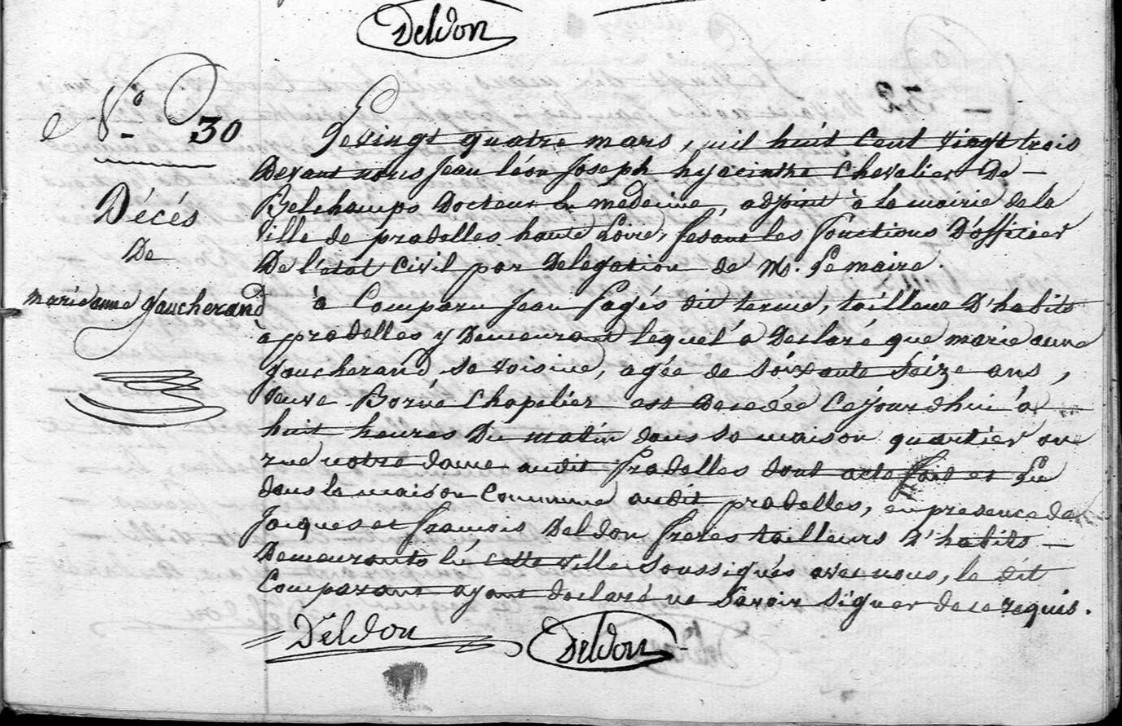 Deldon
N.° 30
Décés
De
marie anne Jaucherand
Le vingt quatre mars, mil huit cent vingt trois
Devant nous Jean léon Joseph hyacinthe Chevalier De
Belchamps Docteur en médecine, adjoint à la mairie de la
Ville de pradelles haute Loire, fesant les fonctions D'officier
De l'état Civil par Délégation de Mr. Lemaire.
à Comparu Jean Pagés dit terme, tailleur D'habits
à pradelles y Demeurant lequel a Déclaré que marie anne
Jaucherand sa voisine, agée de soixante seize ans,
veuve Borné Chapelier est décédée Cejourdhui à
huit heures Du matin dans sa maison quartier ou
rue notre dame audit Pradelles dont acte fait et Lu
dans la maison Commune audit pradelles, en presence de
Jacques et françois Deldon freres tailleurs D'habits
Demeurants cette ville soussignés avec nous, le dit
Comparant ayant declaré ne Savoir Signer de ce requis.
Deldon
Deldon